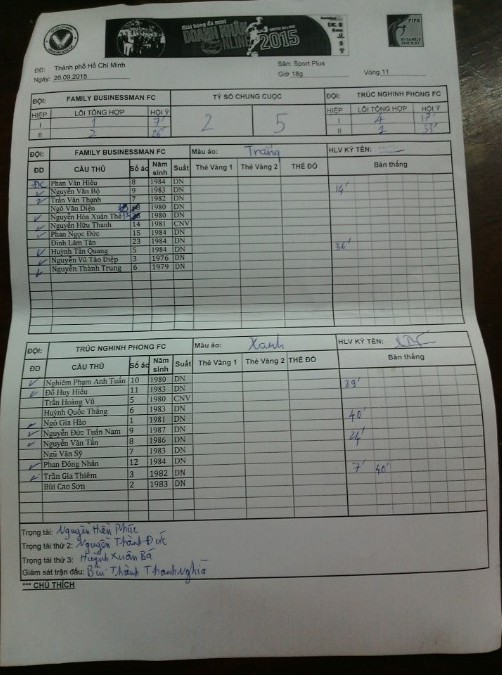 DOANH NHÂN
2015
FIFA
ĐĐ: Thành phố Hồ Chí Minh Sân: Sport Plus
Ngày: 26.09.2015 Giờ 18g Vòng 11
ĐỘI: FAMILY BUSINESSMAN FC TỶ SỐ CHUNG CUỘC ĐỘI: TRÚC NGHINH PHONG FC
HIỆP LỖI TỔNG HỢP HỘI Ý 2 5 HIỆP LỖI TỔNG HỢP HỘI Ý
I 1 7' I 4
II 2 II 2
ĐỘI: FAMILY BUSINESSMAN FC Màu áo: Trắng HLV KÝ TÊN:
ĐD CẦU THỦ Số áo Năm sinh Suất Thẻ Vàng 1 Thẻ Vàng 2 THẺ ĐỎ Bàn thắng
ĐC Phan Văn Hiếu 8 1984 DN
Nguyễn Văn Bộ 9 1983 DN 14'
Trần Văn Thạnh 7 1982 DN
Ngô Văn Diện 1980 DN
Nguyễn Hòa Xuân Thê 1980 DN
Nguyễn Hữu Thanh 14 1981 CNV
Phan Ngọc Đức 15 1984 DN
Đinh Lâm Tân 23 1984 DN
Huỳnh Tấn Quang 5 1984 DN 36'
Nguyễn Vũ Tảo Diệp 3 1976 DN
Nguyễn Thành Trung 6 1979 DN
ĐỘI: TRÚC NGHINH PHONG FC Màu áo: Xanh HLV KÝ TÊN:
ĐD CẦU THỦ Số áo Năm sinh Suất Thẻ Vàng 1 Thẻ Vàng 2 THẺ ĐỎ Bàn thắng
Nghiêm Phạm Anh Tuấn 10 1980 DN
Đỗ Huy Hiếu 11 1983 DN
Trần Hoàng Vũ 5 1980 CNV
Huỳnh Quốc Thắng 6 1983 DN
Ngô Gia Hào 1 1981 DN 40'
Nguyễn Đức Tuấn Nam 9 1987 DN
Nguyễn Văn Tấn 8 1986 DN
Ngũ Văn Sỹ 7 1983 DN
Phan Đông Nhân 12 1984 DN 7' 40'
Trần Gia Thiêm 3 1982 DN
Bùi Cao Sơn 2 1983 DN
Trọng tài: Nguyễn Hiền Phúc
Trọng tài thứ 2: Nguyễn Thành Đức
Trọng tài thứ 3: Huỳnh Xuân Bá
Giám sát trận đấu: Bùi Thành Thanh Nghĩa
*** CHÚ THÍCH